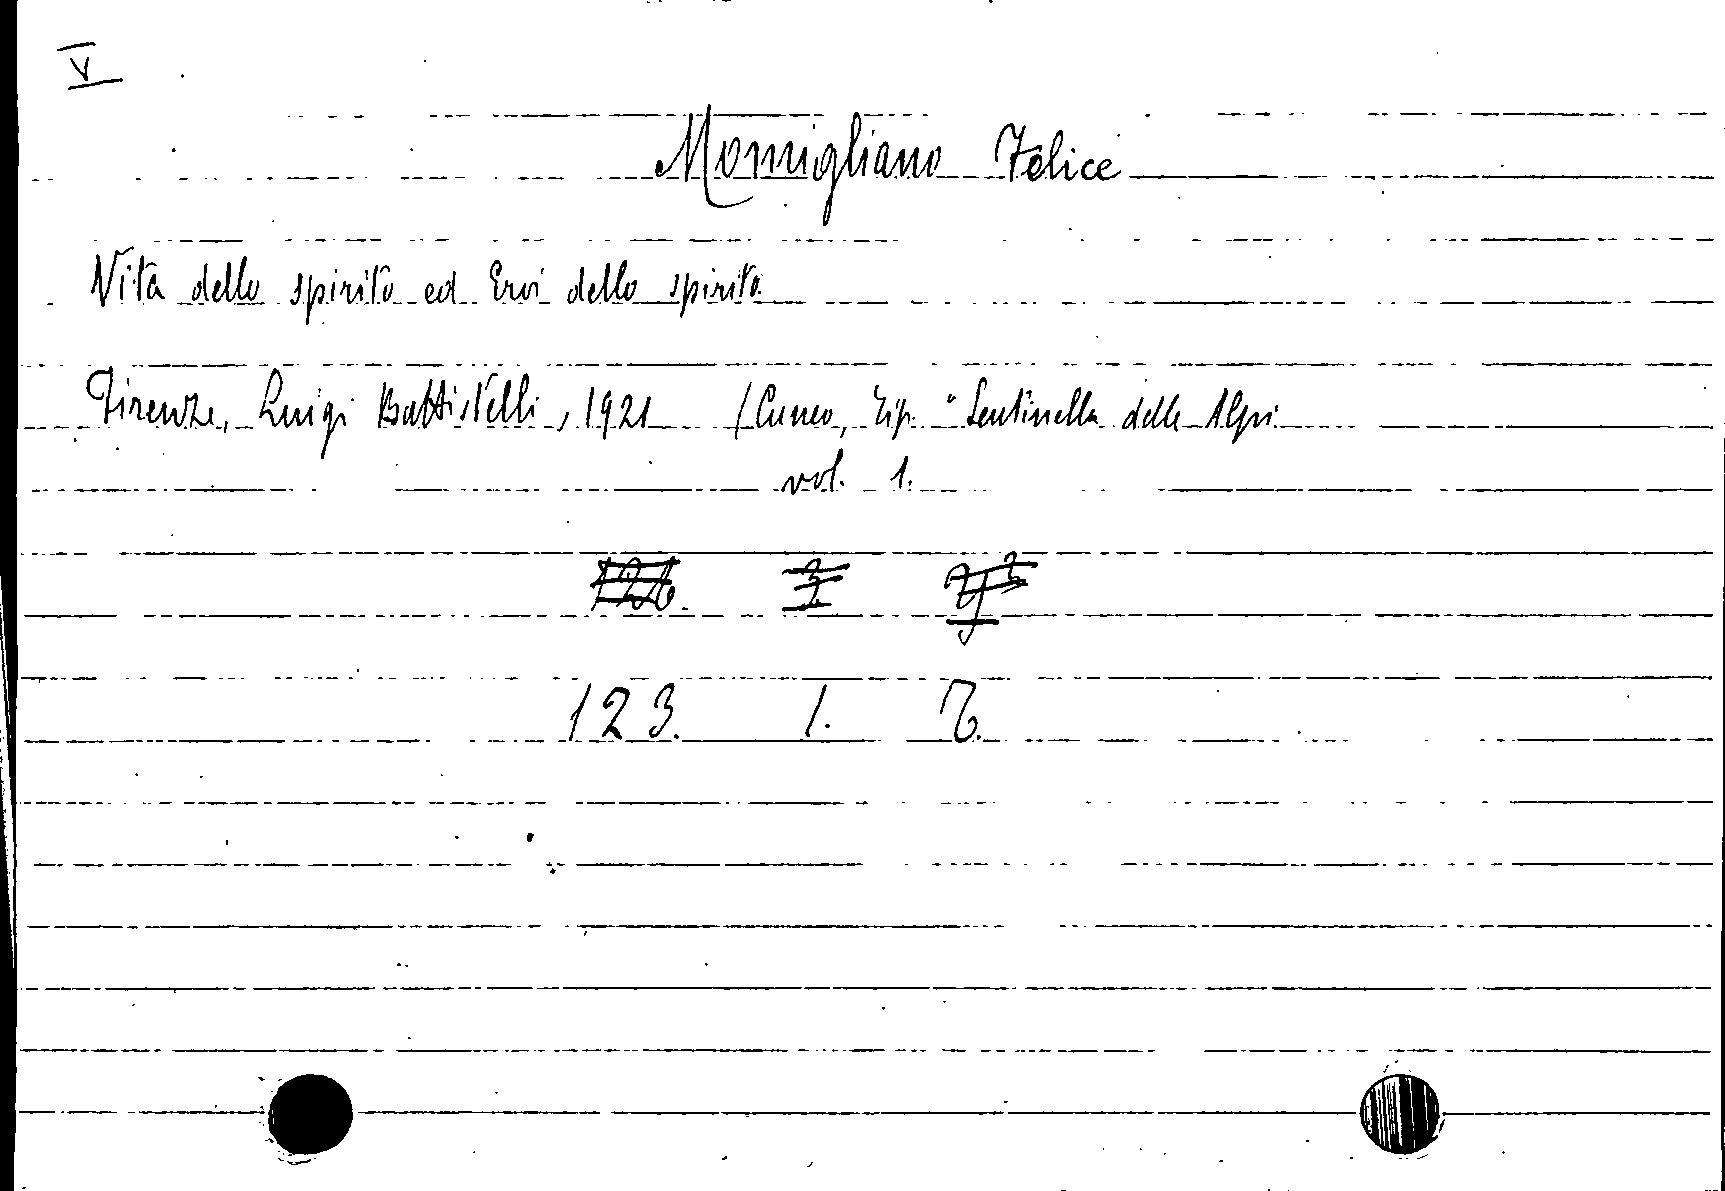 V
Momigliano Felice
Vita dello spirito ed Eroi dello spirito.
Firenze, Luigi Battistelli, 1921 (Cuneo, Tip. "Sentinella delle Alpi
vol. 1.
123. 1. 7.